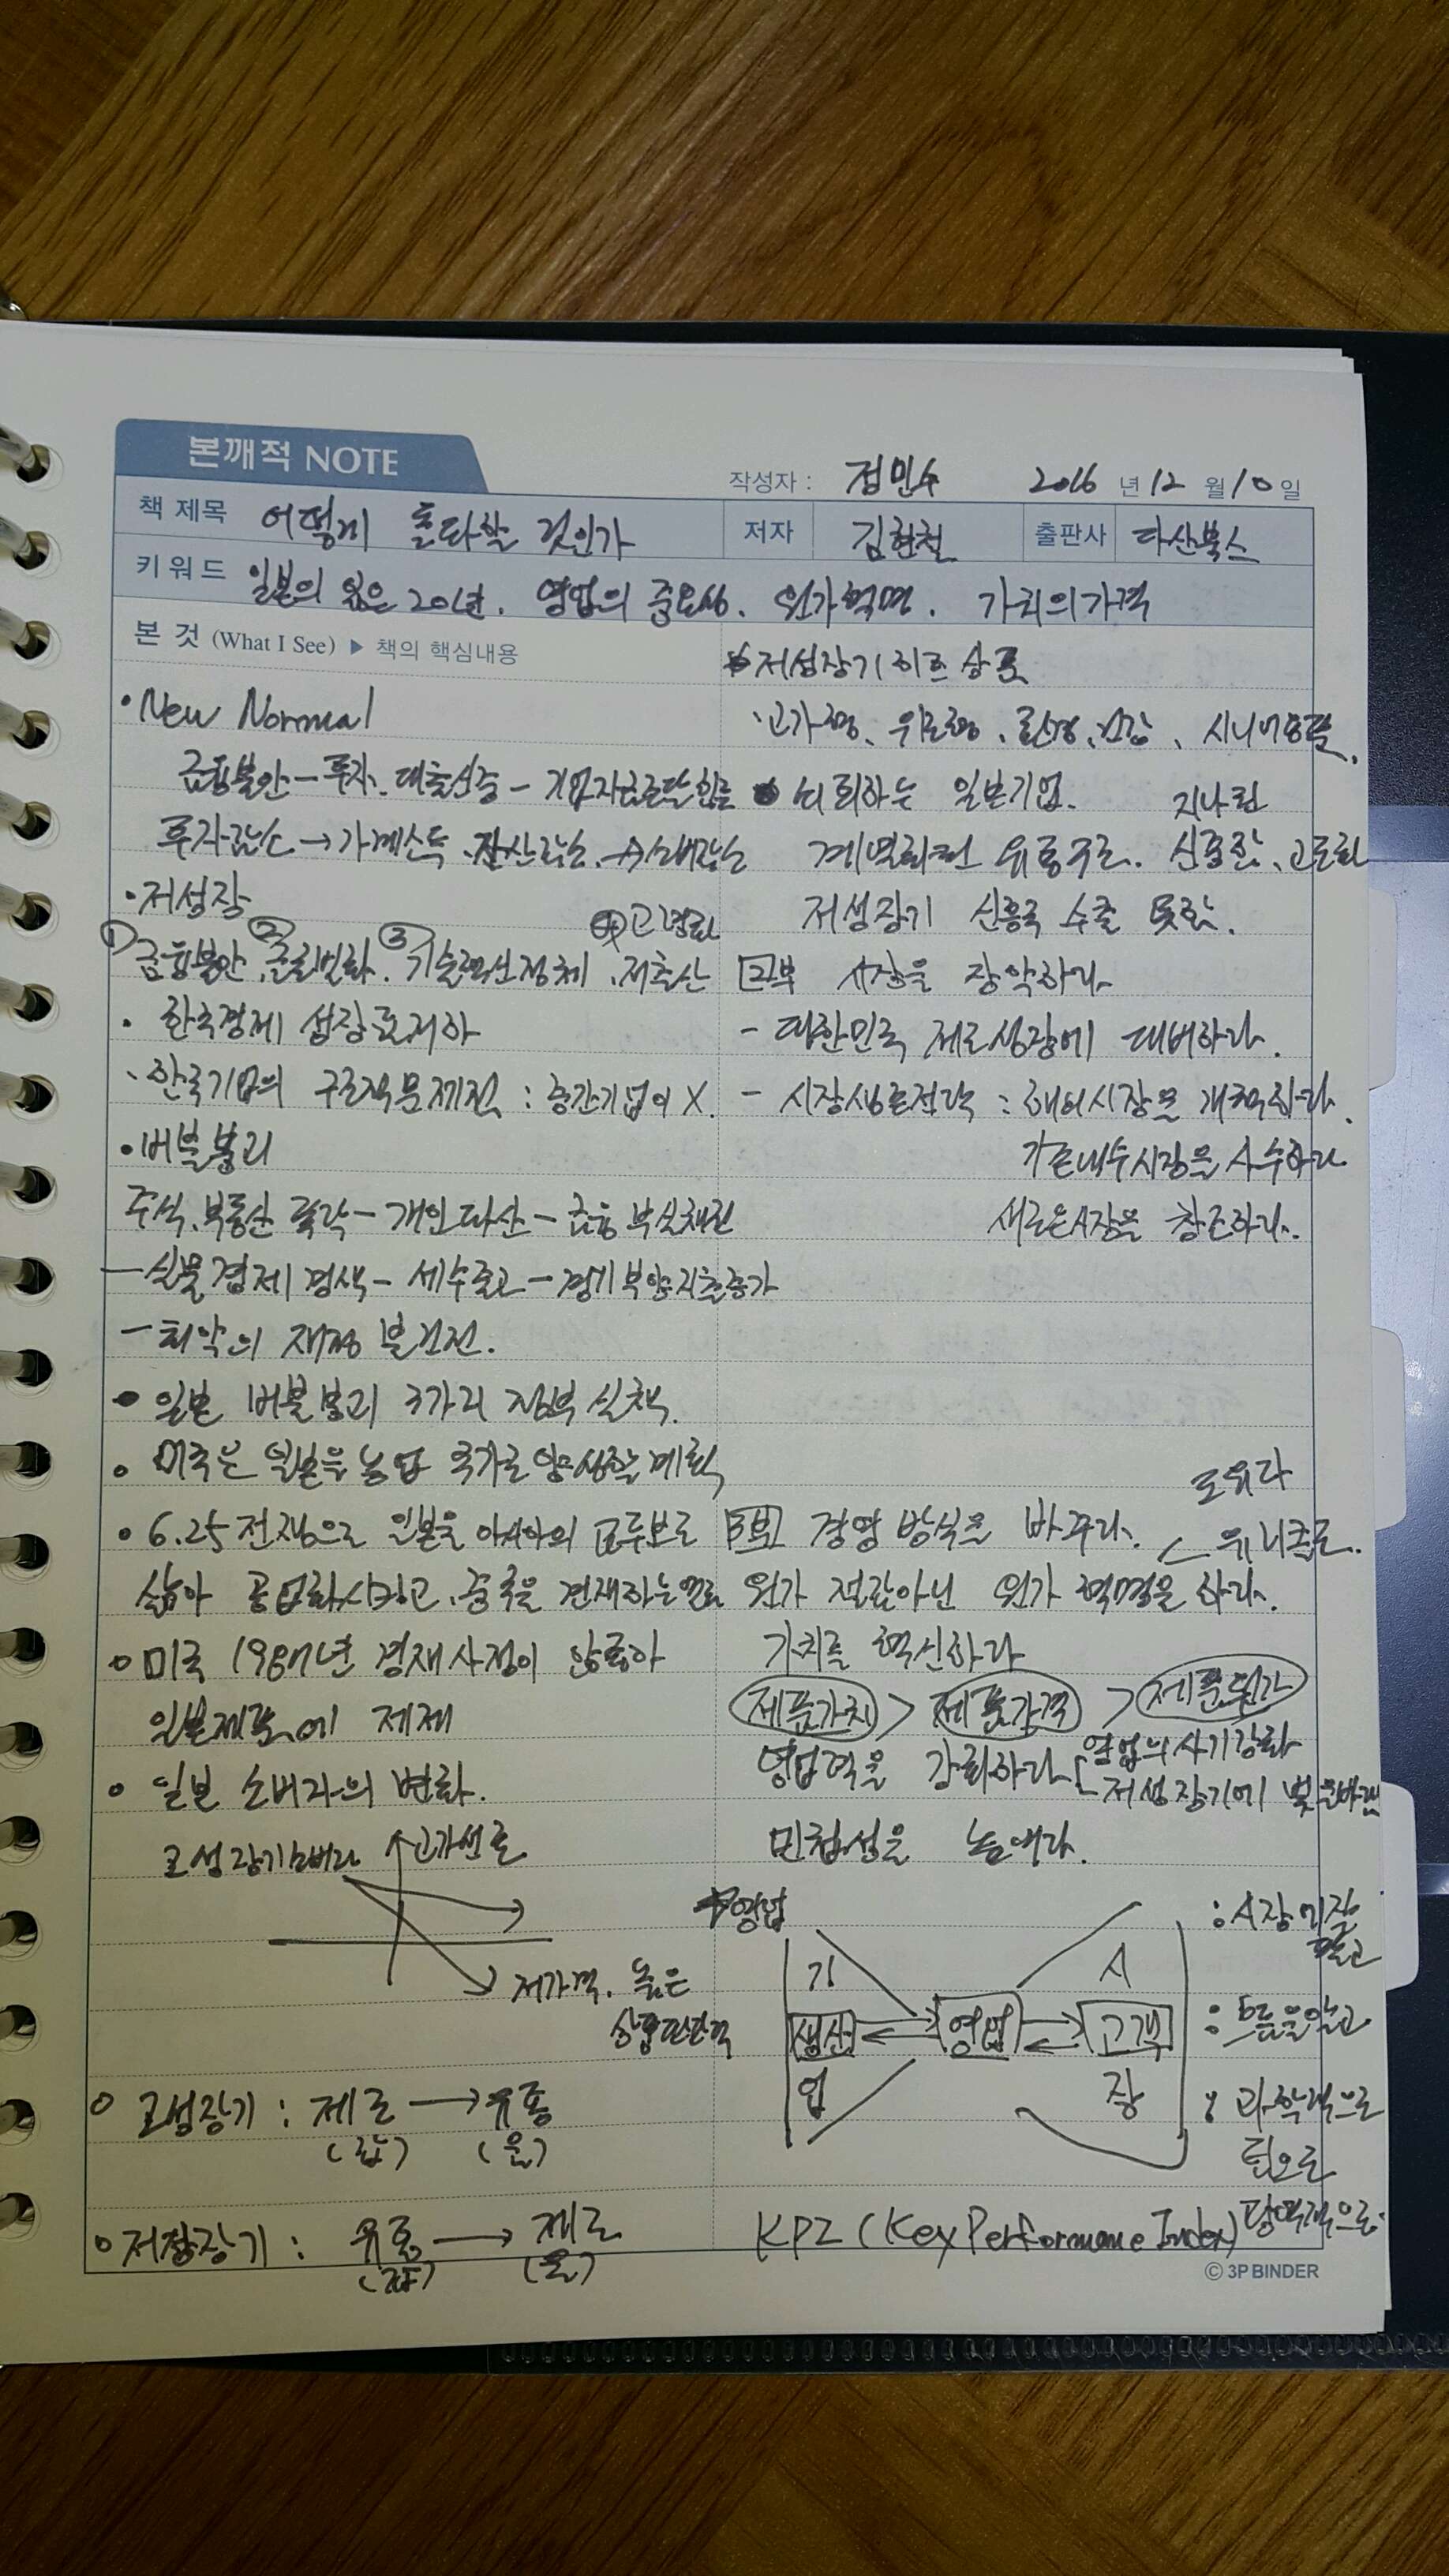 본깨적 NOTE
작성자 : 정민수 2016 년 12 월 10 일
책 제목 어떻게 돌파할 것인가 저자 김현철 출판사 다산북스
키워드 일본의 잃은 20년. 영업의 중요성. 원가혁명. 가치의 가격
본 것 (What I See) ▶ 책의 핵심내용
• New Normal
금융불안 - 투자. 대출신중 - 기업자금조달 힘듦
투자감소 → 가계소득. 자산감소. → 소비감소
• 저성장
④ 고령화
① 금융불안. ② 글로벌화. ③ 기술혁신정체. 저출산
• 한국경제 성장률저하
• 한국기업의 구조적문제점 : 중간기업이 X.
• 버블붕괴
주식. 부동산 폭락 - 개인파산 - 금융 부실채권
- 실물경제 경색 - 세수감소 - 경기부양지출증가
- 최악의 재정 불건전.
• 일본 버블붕괴 3가지 정부실책.
• 미국은 일본을 농업 국가로 양성할 계획
• 6.25 전쟁으로 일본을 아시아의 교두보로
삼아 공업화시키고. 중국을 견제하는
• 미국 1987년 경제사정이 안좋아
일본제품에 제제
• 일본 소비자의 변화.
고성장기소비자 고가선호
저가격. 높은
상품판단력
• 고성장기 : 제조 → 유통
(갑) (을)
• 저성장기 : 유통 → 제조
(갑) (을)
* 저성장기 히트 상품
고가형. 위로형. 건강. 시니어용품.
• 퇴하는 일본기업. 지나친
계열화된 유통구조. 신중함. 고도화
저성장기 신흥국 수출 못함.
2부 시장을 장악하라
- 대한민국 제로성장에 대비하라.
- 시장생존전략 : 해외시장을 개척하라.
기존내수시장을 사수하라
새로운시장을 창조하라.
도요타
3부 경영 방식을 바꾸라. < 유니클로.
원가 절감아닌 원가 혁명을 하라.
가치를 혁신하라
제품가치 > 제품가격 > 제품원가
영업력을 강화하라 [ 영업의 사기강화
저성장기에 맞는
민첩성을 높여라.
* 영업
기 시 : 시장
생산 영업 고객
업 장 : 과학적으로
팀으로
KPI (Key Performance Index) 광역적으로.
© 3P BINDER